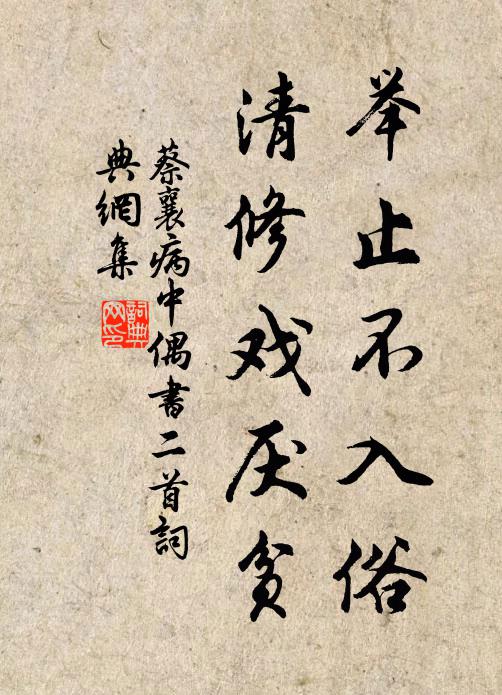 举止不入俗
清修戏厌贫
蔡襄病中偶書二首詞
典網集
詞典
网印